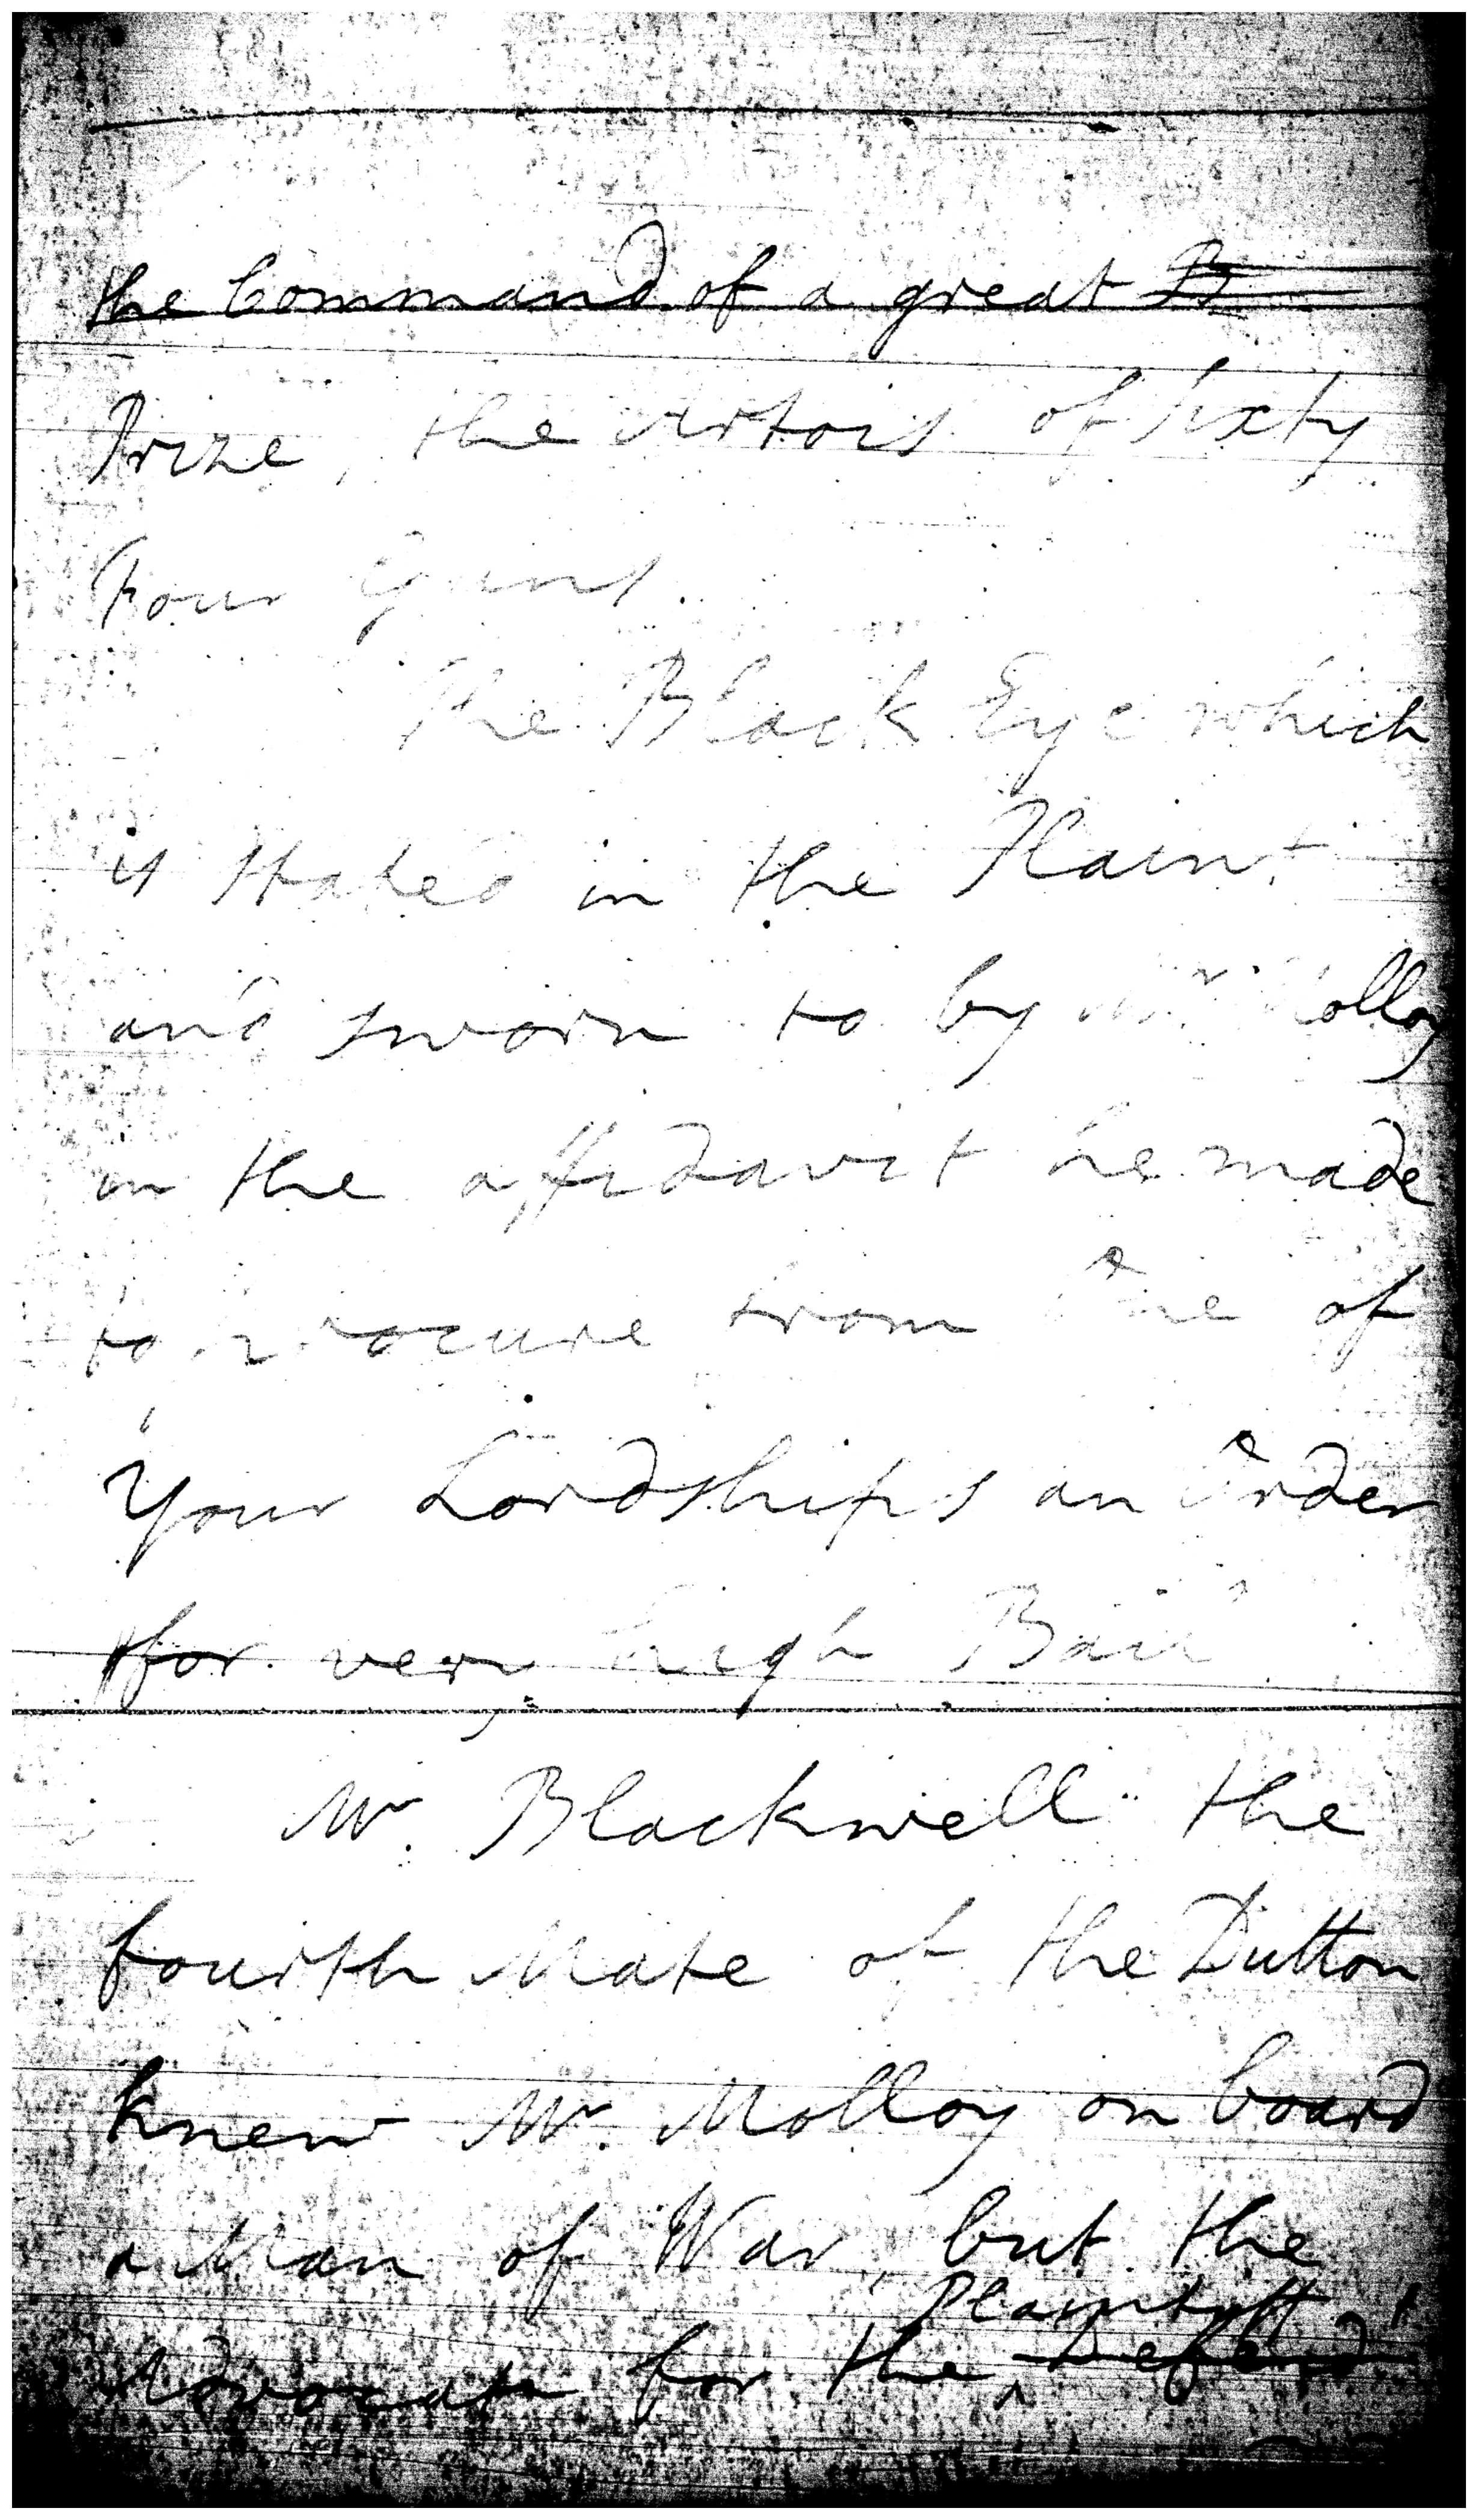 the Command of a great Pr
Prize, the Artois of Sixty
Four Guns.
The Black Eye which
is stated in the Plaint
and sworn to by Mr. Molloy
in the affidavit he made
to procure from One of
Your Lordships an Order
for very high Bail
Mr. Blackwell the
fourth Mate of the Dutton
knew Mr. Molloy on board
a Man of War, but the
Plaintiff
Advocate for the ^ Defendt